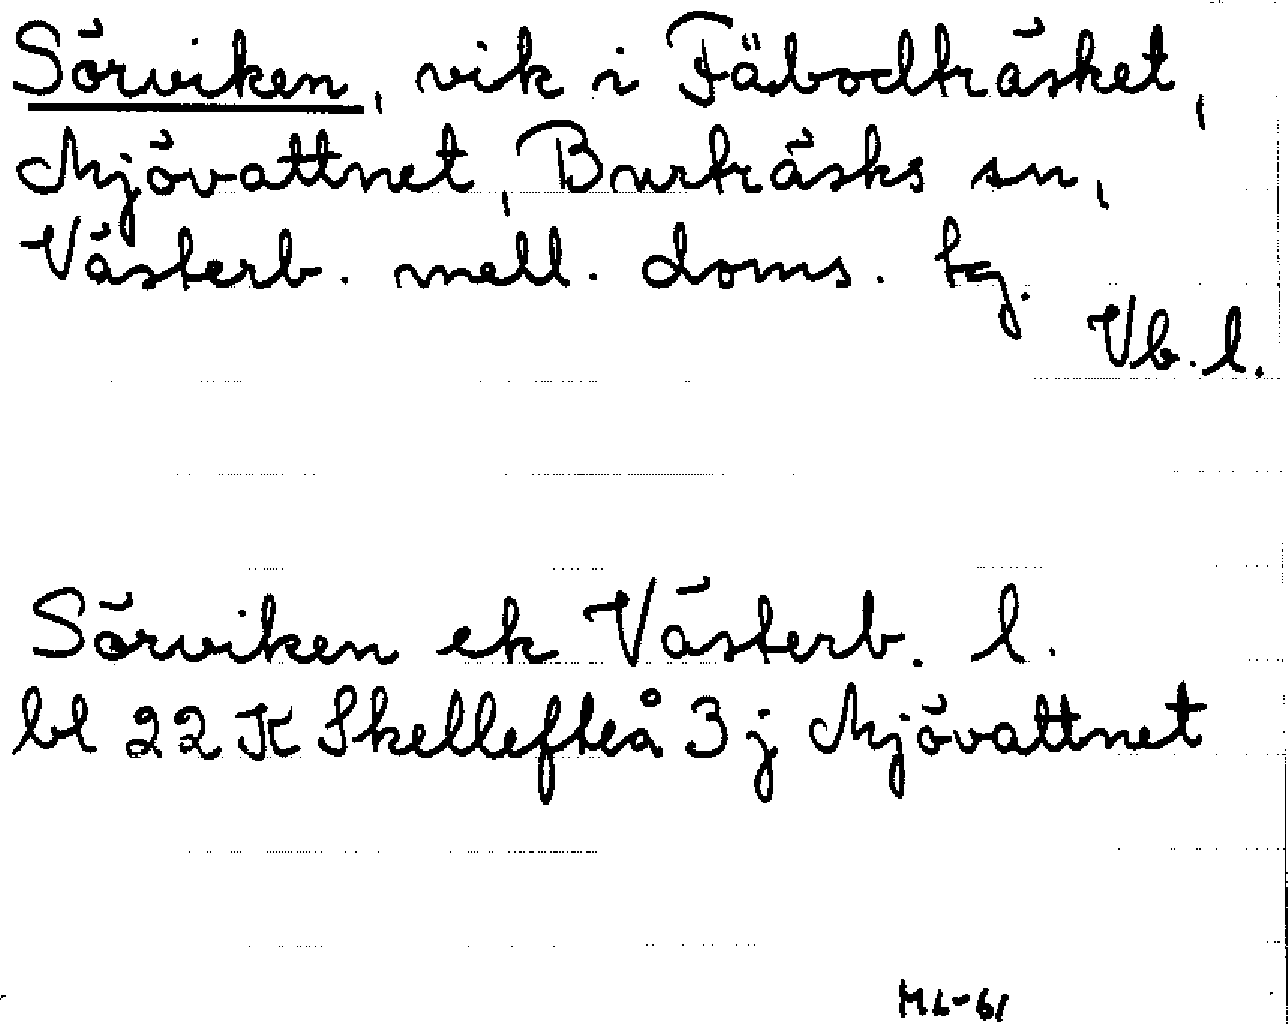 Sörviken, vik i Fäbodträsket,
Mjövattnet, Burträsks sn,
Västerb. mell. doms. tg.
Vb. l.
Sörviken ek Västerb. l.
bl 22 K Skellefteå 3 j Mjövattnet
ML-61